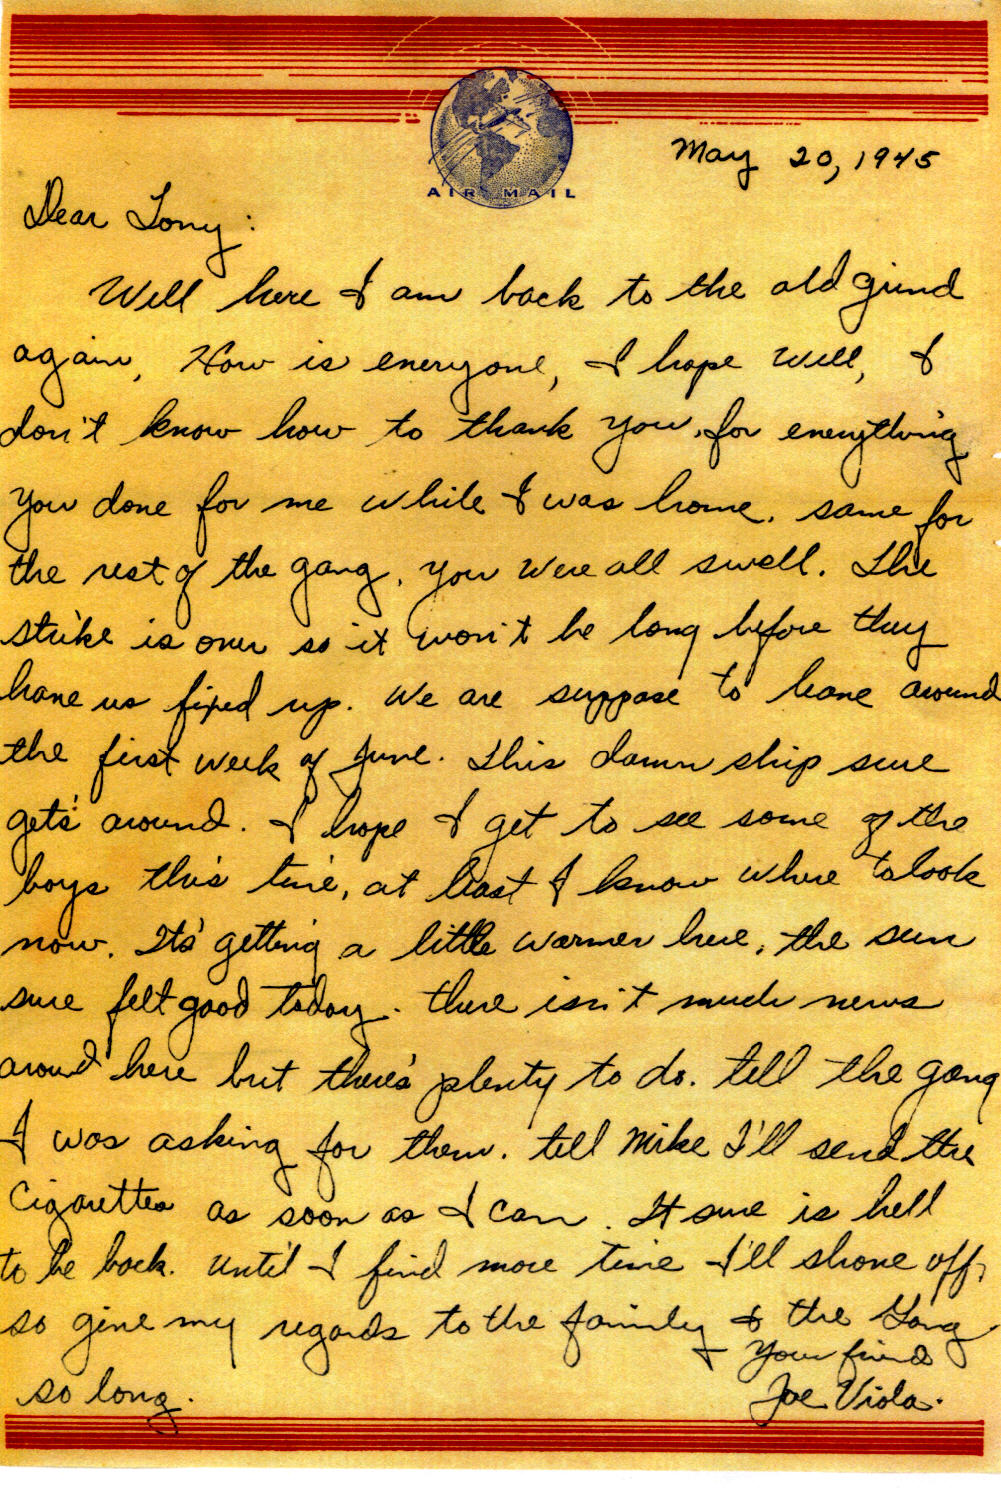 AIR MAIL
May 20, 1945
Dear Tony:
Well here I am back to the old grind
again, How is everyone, I hope well, I
don't know how to thank you, for everything
you done for me while I was home. same for
the rest of the gang. you were all swell. The
strike is over so it won't be long before they
have us fixed up. We are suppose to leave around
the first week of June. This damn ship sure
gets' around. I hope I get to see some of the
boys this time, at least I know where to look
now. Its' getting a little warmer here, the sun
sure felt good today. there isn't much news
around here but there's plenty to do. tell the gang
I was asking for them. tell Mike I'll send the
Cigarettes as soon as I can. It sure is hell
to be back. until I find more time I'll shove off,
so give my regards to the family & the Gang.
I Your friend
so long. Joe Viola.